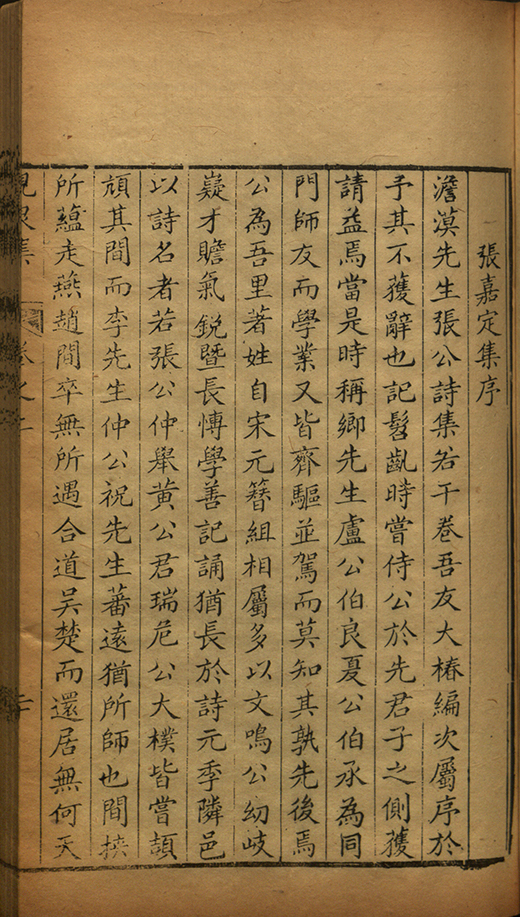 張嘉定集序
澹漠先生張公詩集若干卷吾友大椿編次屬序於
予其不獲辭也記髫齓時嘗侍公於先君子之側獲
請益焉當是時稱鄉先生盧公伯良夏公伯承為同
門師友而學業又皆齊驅並駕而莫知其孰先後焉
公為吾里著姓自宋元簪組相屬多以文鳴公幼岐
嶷才贍氣銳暨長博學善記誦猶長於詩元季隣邑
以詩名者若張公仲舉黄公君瑞危公大樸皆嘗頡
頏其間而李先生仲公祝先生蕃遠猶所師也間挾
所蘊走燕趙間卒無所遇合道吳楚而還居無何天
峴泉集 卷之二